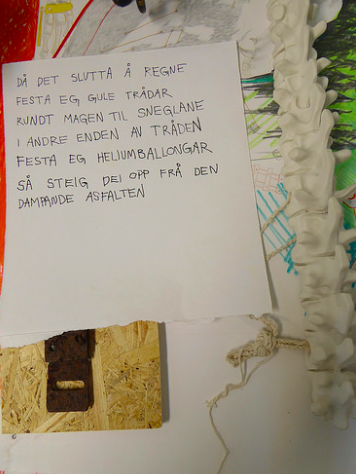 DÅ DET SLUTTA Å REGNE
FESTA EG GULE TRÅDAR
RUNDT MAGEN TIL SNEGLANE
I ANDRE ENDEN AV TRÅDEN
FESTA EG HELIUMBALLONGAR
SÅ STEIG DEI OPP FRÅ DEN
DAMPANDE ASFALTEN